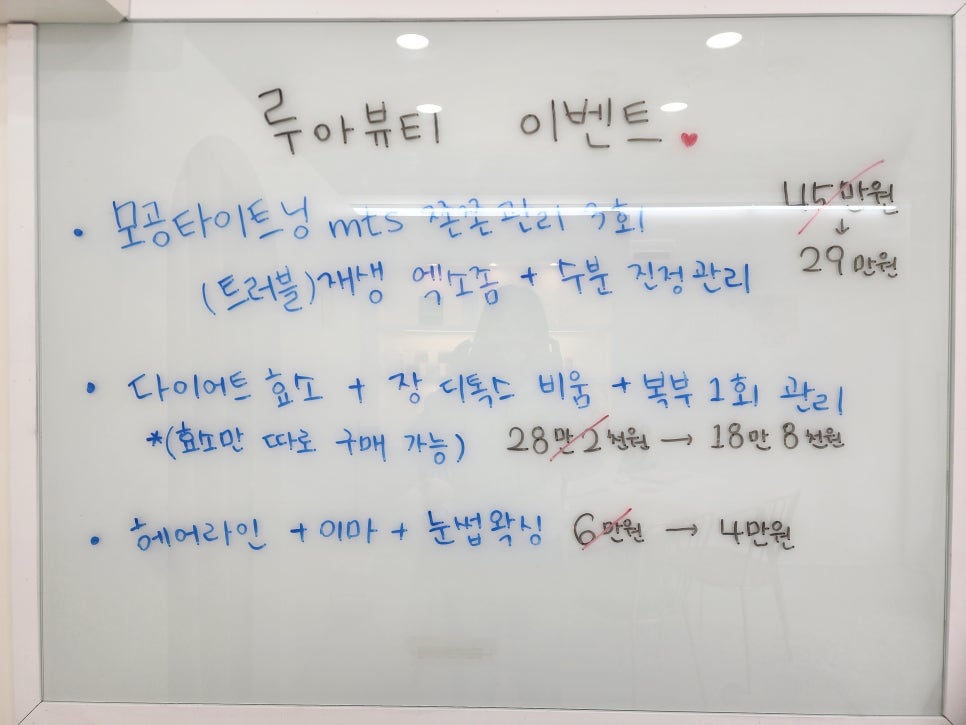 루아뷰티 이벤트
• 모공타이트닝 mts 쫀쫀관리 3회
45만원
↓
29만원
(트러블)재생 엑소좀 + 수분 진정관리
• 다이어트 효소 + 장 디톡스 비움 + 복부 1회 관리
*(효소만 따로 구매 가능) 28만 2천원 → 18만 8천원
• 헤어라인 + 이마 + 눈썹왁싱 6만원 → 4만원